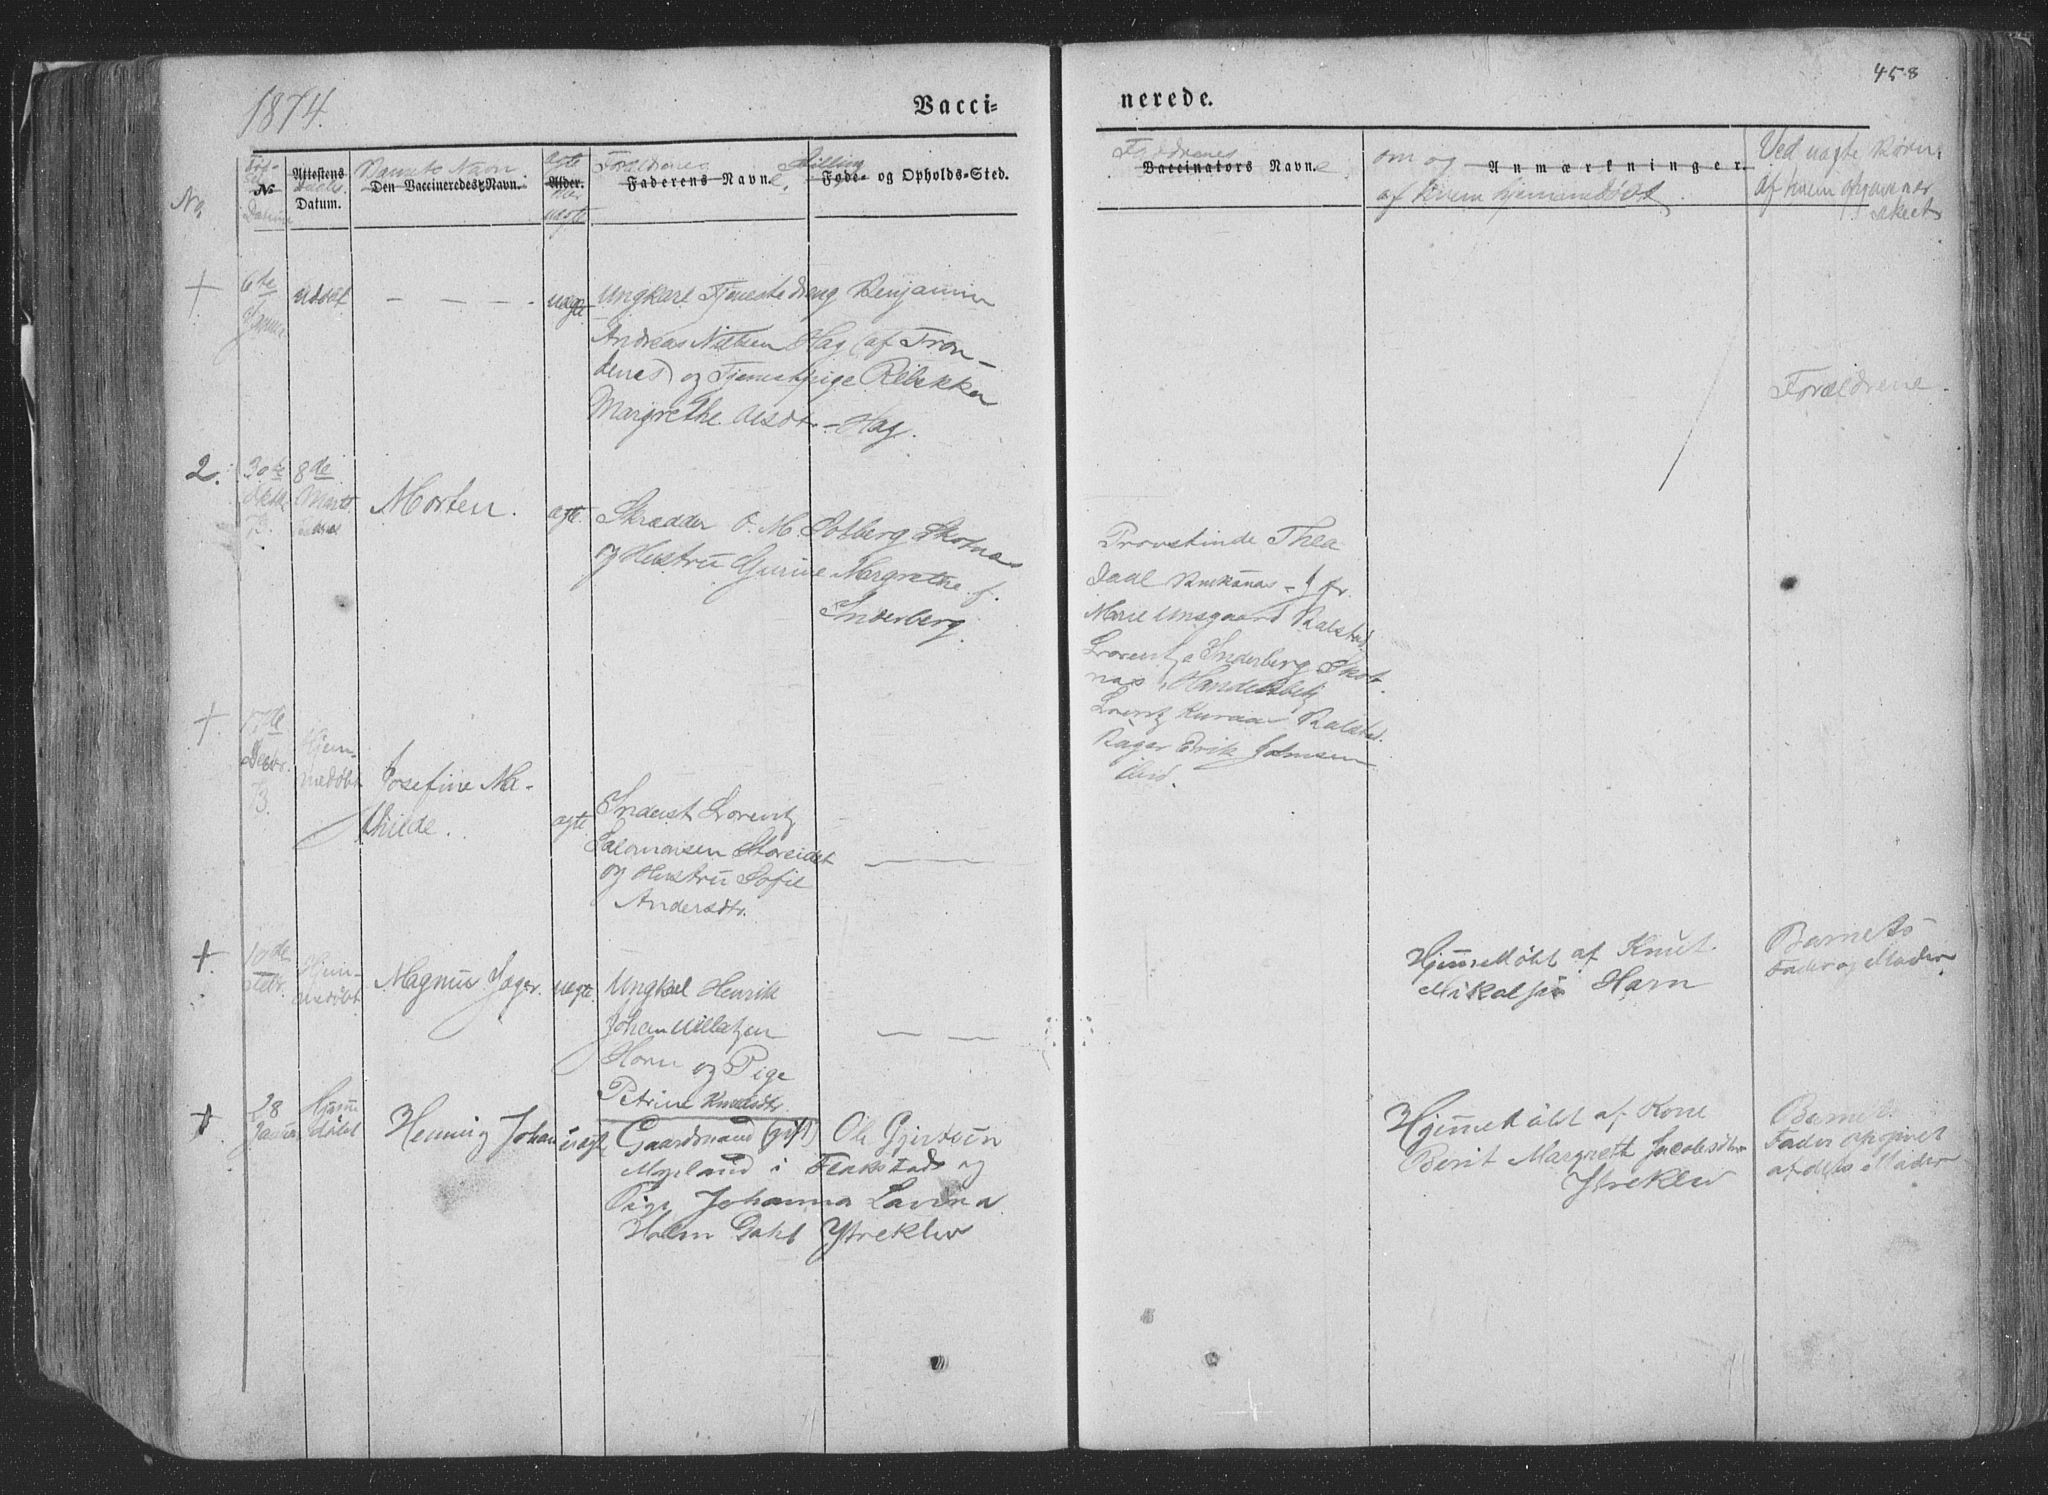 458
1874.
Vacci-
nerede.
No
Datum
№
Attestens
Datum.
Barnets Navn
Den Vaccineredes Navn.
Alder.
ægte
uægte
Forældrenes Stilling
Faderens Navn.
Føde- og Opholds-Sted.
Vaccinators Navn.
om og
Anmærkninger.
af hvem hjemmedøbt
Ved uægte Børn:
af hvem Opgaven er
skeet
+ 6te
Januar
uddøbt
uægte
Ungkarl Tjenestedreng Benjamin
Andreas Nielsen Hag (af Tron-
denes) og Tjenestpige Rebekka
Margrethe Olsdtr - Hag.
Forældrene.
2. 30te 8de
Marts
Morten. ægte.
Skrædder O. M. Solberg Skotnes
og Hustru Gurine Margrethe f.
Inderberg.
Provstinde Thea
Daal Buksnæs - Jfr.
Marie Unsgaard Balstad.
Lorentz Inderberg Skot-
næs, Handelsbetj
Lorentz Balstad.
Bager Erik Johnsen
ibid.
+ 17de
Decbr.
73.
Hjem-
medøbt
Josefine Ma-
thilde. ægte
Inderst Lorentz
Salomonsen Storeidet
og Hustru Sofie
Andersdtr.
+ 10de
Febr.
Hjem-
medøbt
Magnus Jager. uægte
Ungkarl Henrik
Johan
Horn og Pige
Petrine Knudsdtr
Hjemmedøbt af Knut
Mikalsen Horn
Barnets
Fader og Moder
+ 28
Januar
Hjemme
døbt
Henning Johan uægte
Gaardmand (gift) Ole Gjertsen
Myrland i Flakstad og
Pige Johanna Lavina
Holm Dahl Ytreklev
Hjemmedøbt af Kone
Berit Margreth Jacobsdtr
Ytreklev
Barnets
Fader opgivet
af dets Moder